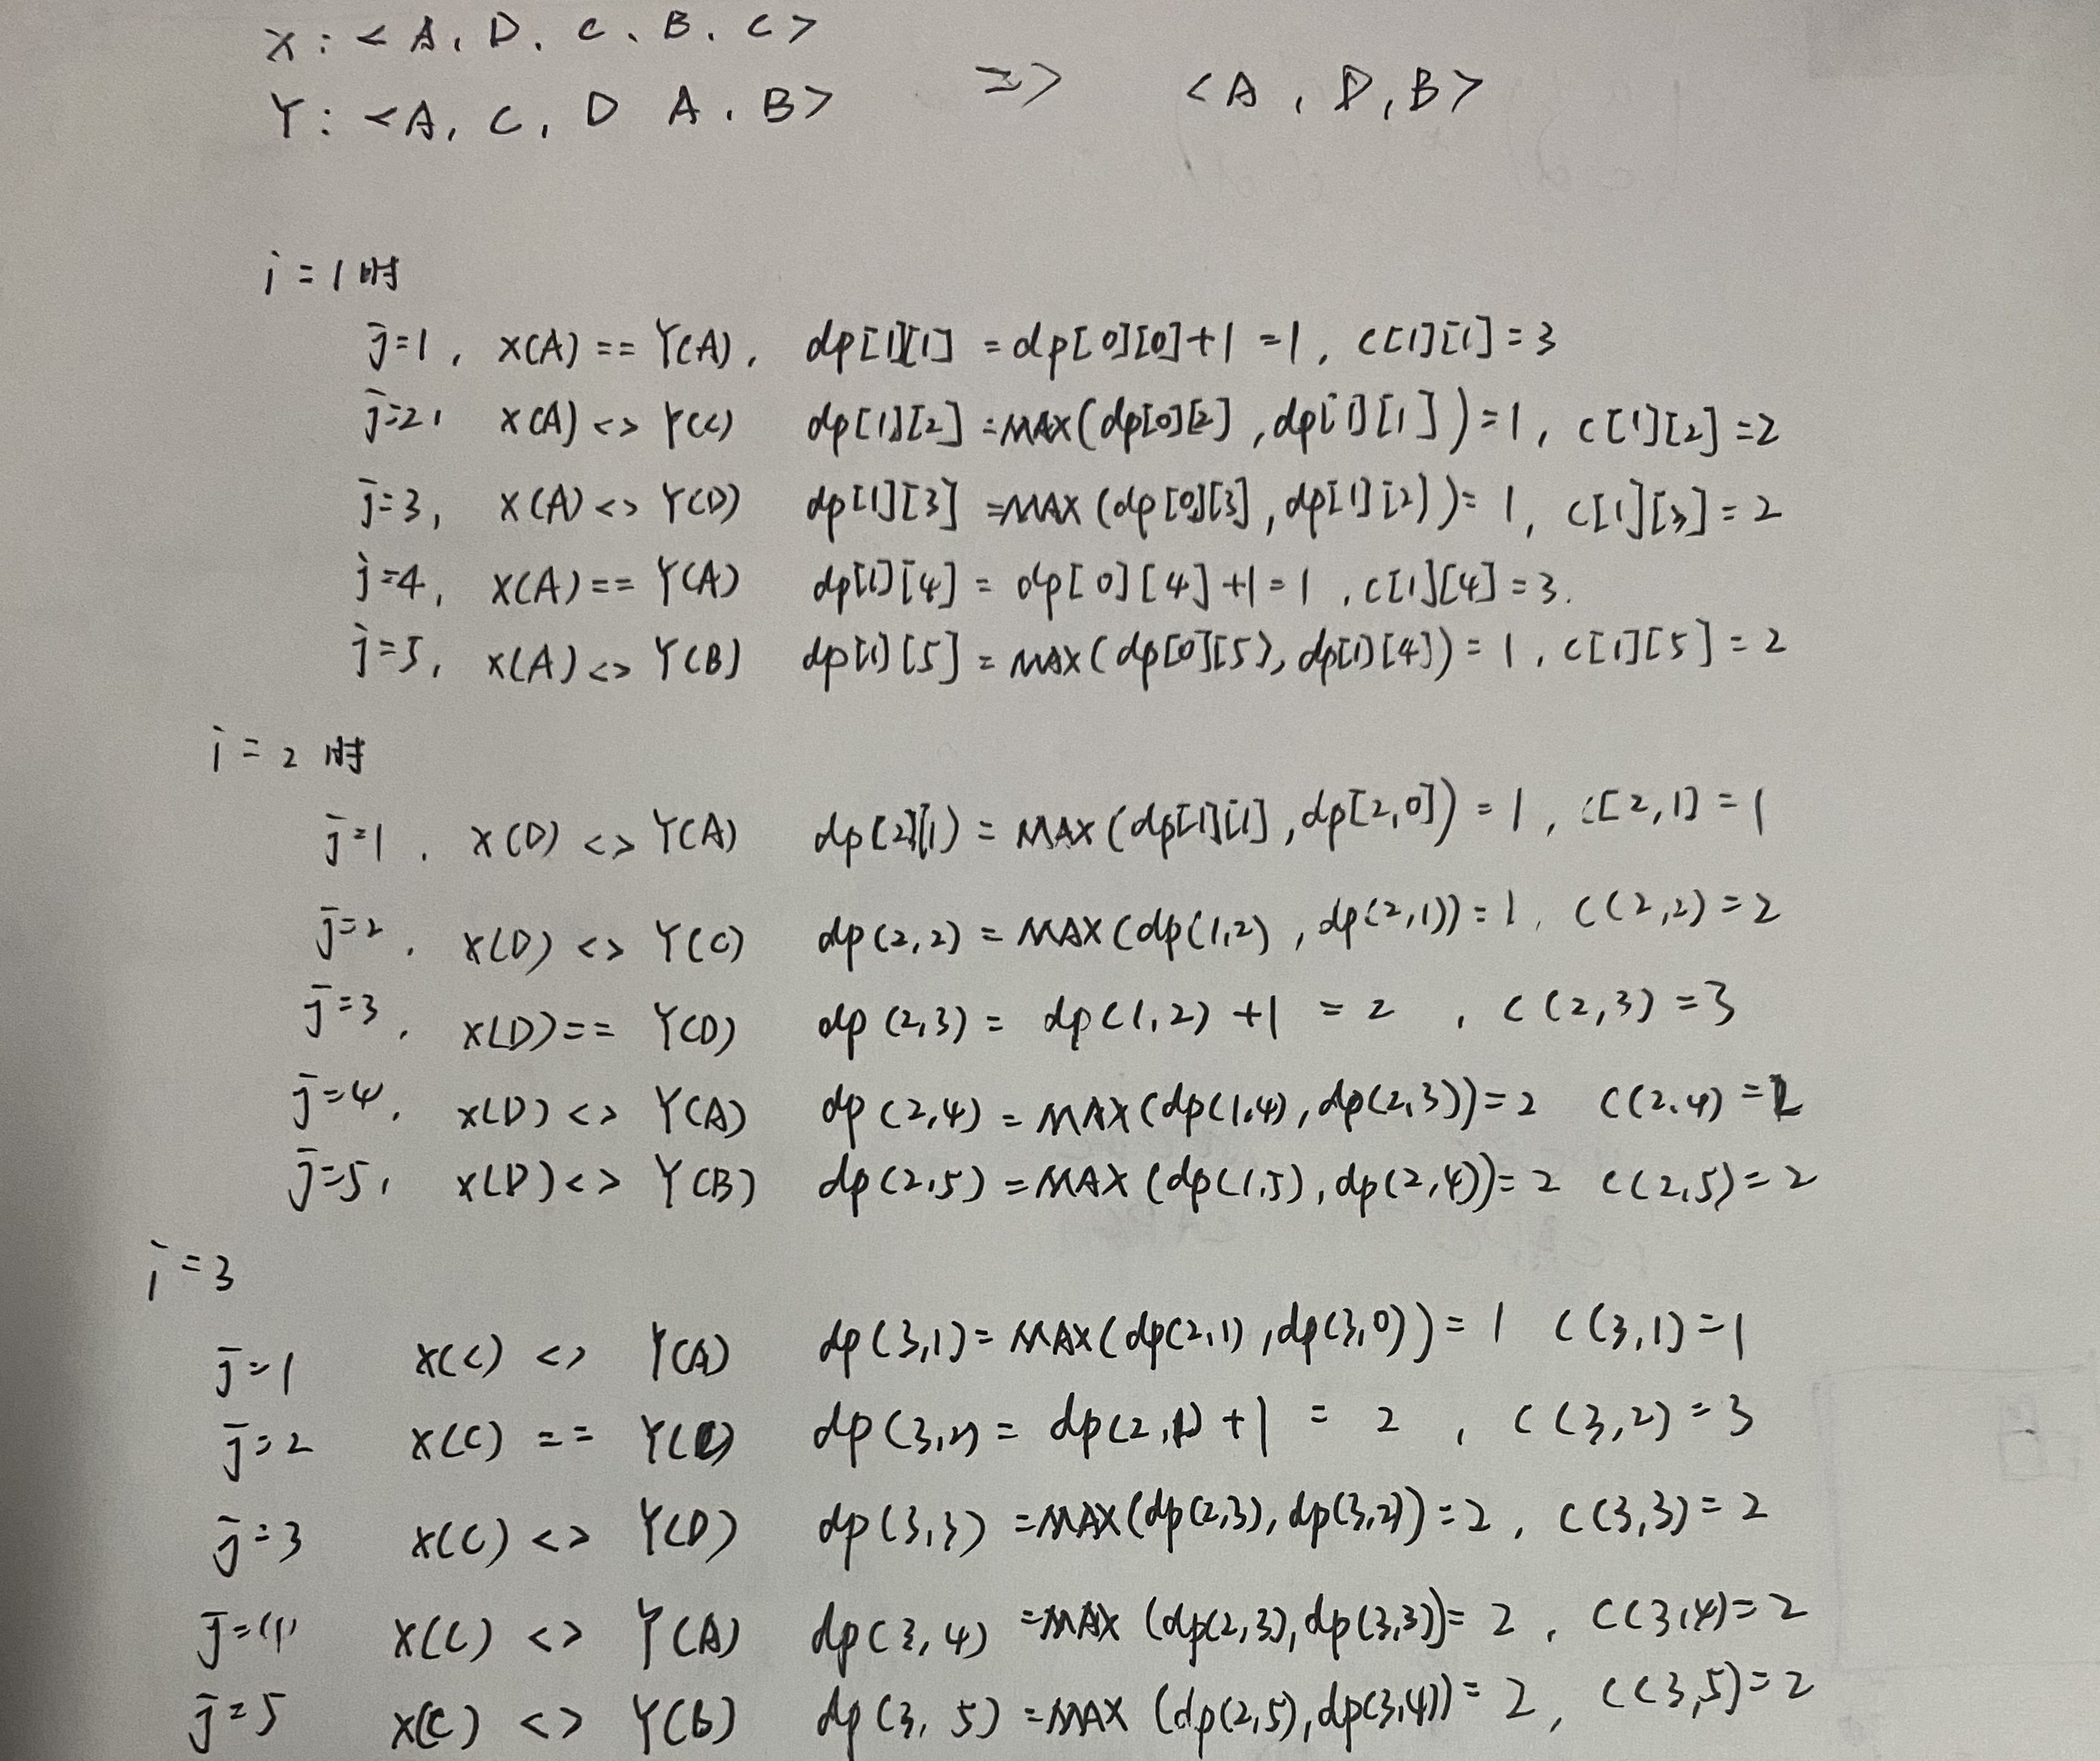 X: <A, D, C, B, C>
Y: <A, C, D A, B> => <A, D, B>
i = 1时
j=1, X(A) == Y(A), dp[1][1] = dp[0][0]+1 =1, c[1][1]=3
j=2, X(A) <> Y(C) dp[1][2] =MAX(dp[0][2], dp[1][1])=1, c[1][2]=2
j=3, X(A) <> Y(D) dp[1][3] =MAX(dp[0][3], dp[1][2])= 1, c[1][3]=2
j=4, X(A) == Y(A) dp[1][4] = dp[0][4]+1=1, c[1][4]=3.
j=5, X(A) <> Y(B) dp[1][5] = MAX(dp[0][5], dp[1][4])= 1, c[1][5]=2
i = 2 时
j=1, X(D) <> Y(A) dp[2][1) = MAX(dp[1][1], dp[2,0]) = 1, c[2,1] = 1
j=2, X(D) <> Y(C) dp(2,2) = MAX(dp(1,2), dp(2,1))=1, c(2,2)=2
j=3, X(D) == Y(D) dp(2,3) = dp(1,2) +1 = 2, c(2,3)=3
j=4, X(D) <> Y(A) dp(2,4) = MAX(dp(1,4), dp(2,3))=2 c(2,4)=2
j=5, X(D) <> Y(B) dp(2,5) =MAX(dp(1,5), dp(2,4))=2 c(2,5)=2
i = 3
j=1 X(C) <> Y(A) dp(3,1)= MAX(dp(2,1), dp(3,0))= 1 c(3,1)=1
j=2 X(C) == Y(C) dp(3,2) = dp(2,1)+1 = 2, c(3,2)=3
j=3 X(C) <> Y(D) dp(3,3) =MAX(dp(2,3), dp(3,2))=2, c(3,3)=2
j=4 X(C) <> Y(A) dp(3,4) =MAX (dp(2,3), dp(3,3))=2, c(3,4)=2
j=5 X(C) <> Y(B) dp(3, 5) =MAX (dp(2,5), dp(3,4))= 2, c(3,5)=2